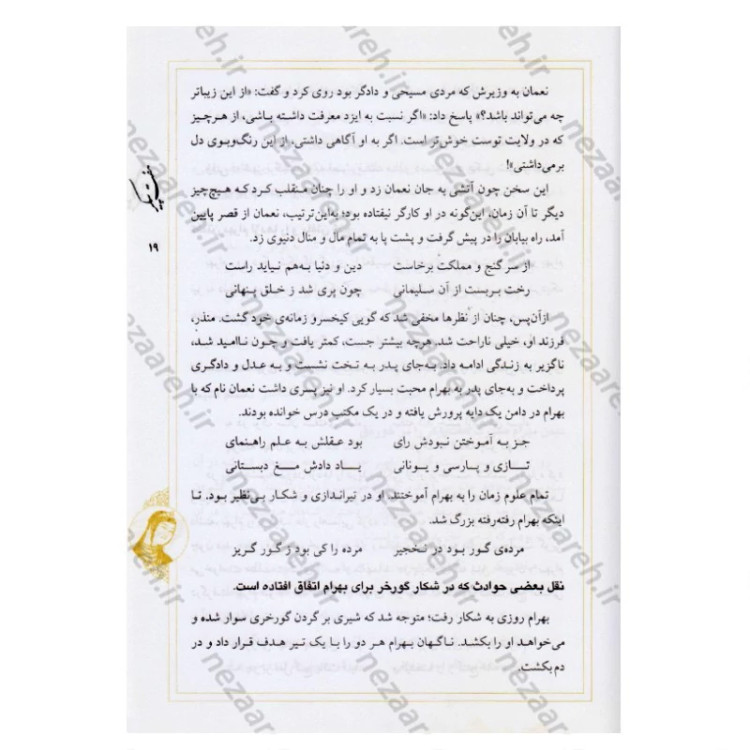 نعمان به وزیرش که مردی مسیحی و دادگر بود روی کرد و گفت: «از این زیباتر
چه می‌تواند باشد؟» پاسخ داد: «اگر نسبت به ایزد معرفت داشته باشی، از هرچیز
که در ولایت توست خوش‌تر است. اگر به او آگاهی داشتی، از این رنگ‌وبوی دل
برمی‌داشتی»!
این سخن چون آتشی به جان نعمان زد و او را چنان منقلب کرد که هیچ‌چیز
دیگر تا آن زمان، این‌گونه در او کارگر نیفتاده بود؛ به‌این‌ترتیب، نعمان از قصر پایین
آمد، راه بیابان را در پیش گرفت و پشت پا به تمام مال و منال دنیوی زد.
از سر گنج و مملکت برخاست دین و دنیا به‌هم نیاید راست
رخت بربست از آن سلیمانی چون پری شد ز خلق پنهانی
ازآن‌پس، چنان از نظرها مخفی شد که گویی کیخسرو زمانه‌ی خود گشت. منذر،
فرزند او، خیلی ناراحت شد. هرچه بیشتر جست، کمتر یافت و چون ناامید شد،
ناگزیر به زندگی ادامه داد. به‌جای پدر به تخت نشست و به عدل و دادگری
پرداخت و به‌جای پدر به بهرام محبت بسیار کرد. او نیز پسری داشت نعمان نام که با
بهرام در دامن یک دایه پرورش یافته و در یک مکتب درس خوانده بودند.
جز به آموختن نبودش رای بود عقلش به علم راهنمای
تازی و پارسی و یونانی یاد دادش مغ دبستانی
تمام علوم زمان را به بهرام آموختند. او در تیراندازی و شکار بی‌نظیر بود. تا
اینکه بهرام رفته‌رفته بزرگ شد.
مرده‌ی گور بود در نخجیر مرده را کی بود ز گور گریز
نقل بعضی حوادث که در شکار گورخر برای بهرام اتفاق افتاده است.
بهرام روزی به شکار رفت؛ متوجه شد که شیری بر گردن گورخری سوار شده و
می‌خواهد او را بکشد. ناگهان بهرام هر دو را با یک تیر هدف قرار داد و در
دم بکشت.
هفت پیکر
۱۹
nezaareh.ir
nezaareh.ir
nezaareh.ir
nezaareh.ir
nezaareh.ir
nezaareh.ir
nezaareh.ir
nezaareh.ir